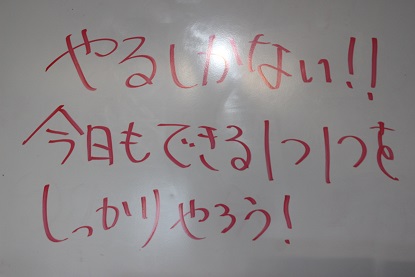 やるしかない!!
今日もできる1つ1つを
しっかりやろう!